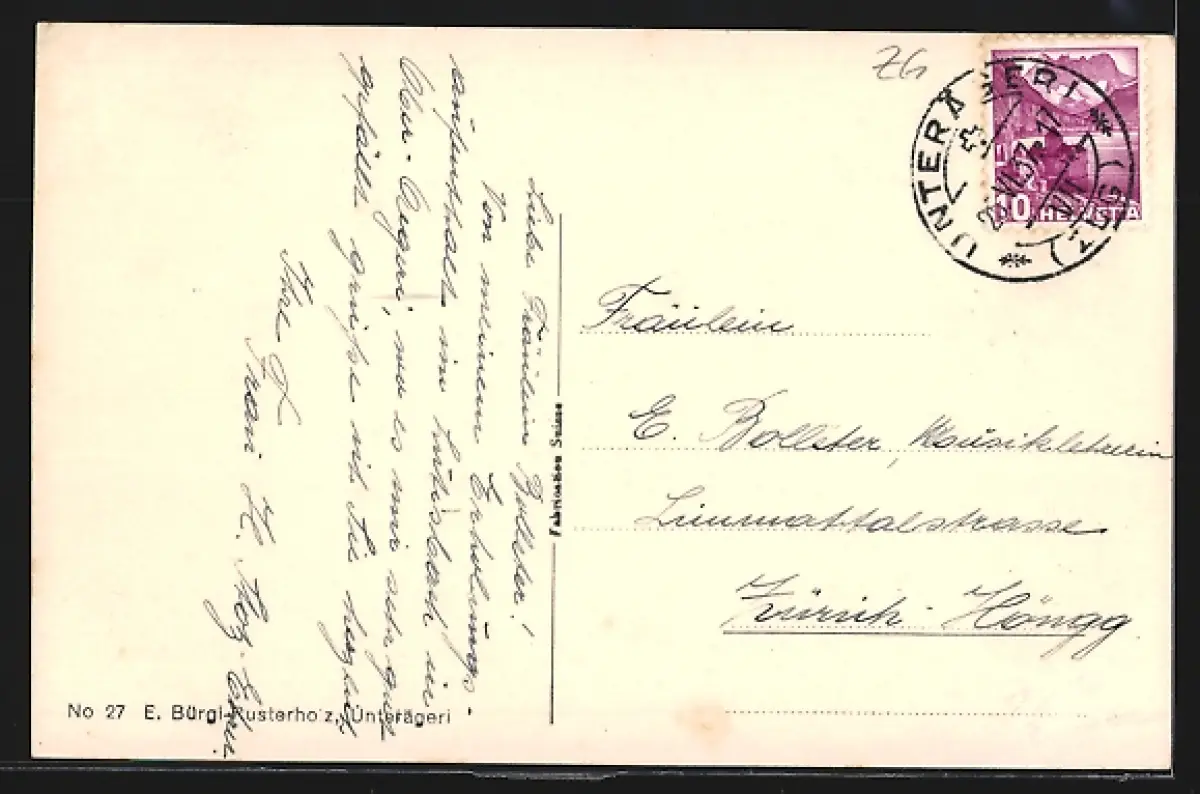 ZG
UNTERÄGERI
(ZUG)
VI.37. 17
10 HELVETIA
Liebe Fräulein Bolleter!
Von meinem Erholungs-
aufenthalt im in
Ober-Aegeri, wo es mir sehr gut
gefällt grüsse ich Sie herzlich
Ihre
Frau H.
Fabrication Suisse
Fräulein
E. Bolleter, Musiklehrerin
Limmattalstrasse
Zürich-Höngg
No 27 E. Bürgi-Rusterholz, Unterägeri